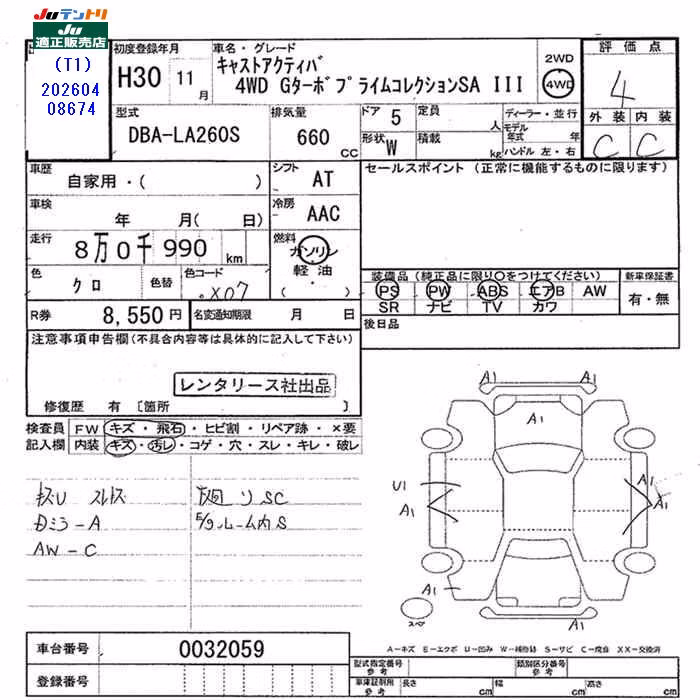 JUテントリ
JU
適正販売店
(T1)
202604
08674
初度登録年月
H30 11月
車名・グレード
キャストアクティバ
4WD GターボプライムコレクションSA III
2WD
4WD
評価点
4
外装 内装
C C
型式
DBA-LA260S
排気量
660 CC
ドア 5
定員 人
形状 W
積載 kg
ディーラー・並行
モデル年式 年
ハンドル 左・右
車歴
自家用・( )
シフト AT
セールスポイント (正常に機能するものに限ります)
車検 年 月( 日)
冷房 AAC
走行
8万0千990 km
燃料
ガソリン
軽油
( )
色 クロ
色替
色コード X07
装備品(純正品に限り○をつけてください)
PS PW ABS エアB AW
SR ナビ TV カワ
新車保証書
有・無
R券 8,550円
名変通知期限 月 日
後日品
注意事項申告欄(不具合内容等は具体的に記入して下さい)
レンタリース社出品
修復歴 有 〔箇所 〕
検査員
記入欄
FW キズ・飛石・ヒビ割・リペア跡・×要
内装 キズ・汚レ・コゲ・穴・スレ・キレ・破レ
キズU スレキズ
Dミラ-A
AW-C
下廻リSC
E/gルーム内S
A1 A1
A1
U1
A1
A1
A1
A1
A1
スペア
A-キズ E-エクボ U-凹み W-補修跡 S-サビ C-腐食 XX-交換済
車台番号 0032059
登録番号
型式指定番号
参考
類別区分番号
参考
車庫証明用
参考
長さ cm 幅 cm 高さ cm